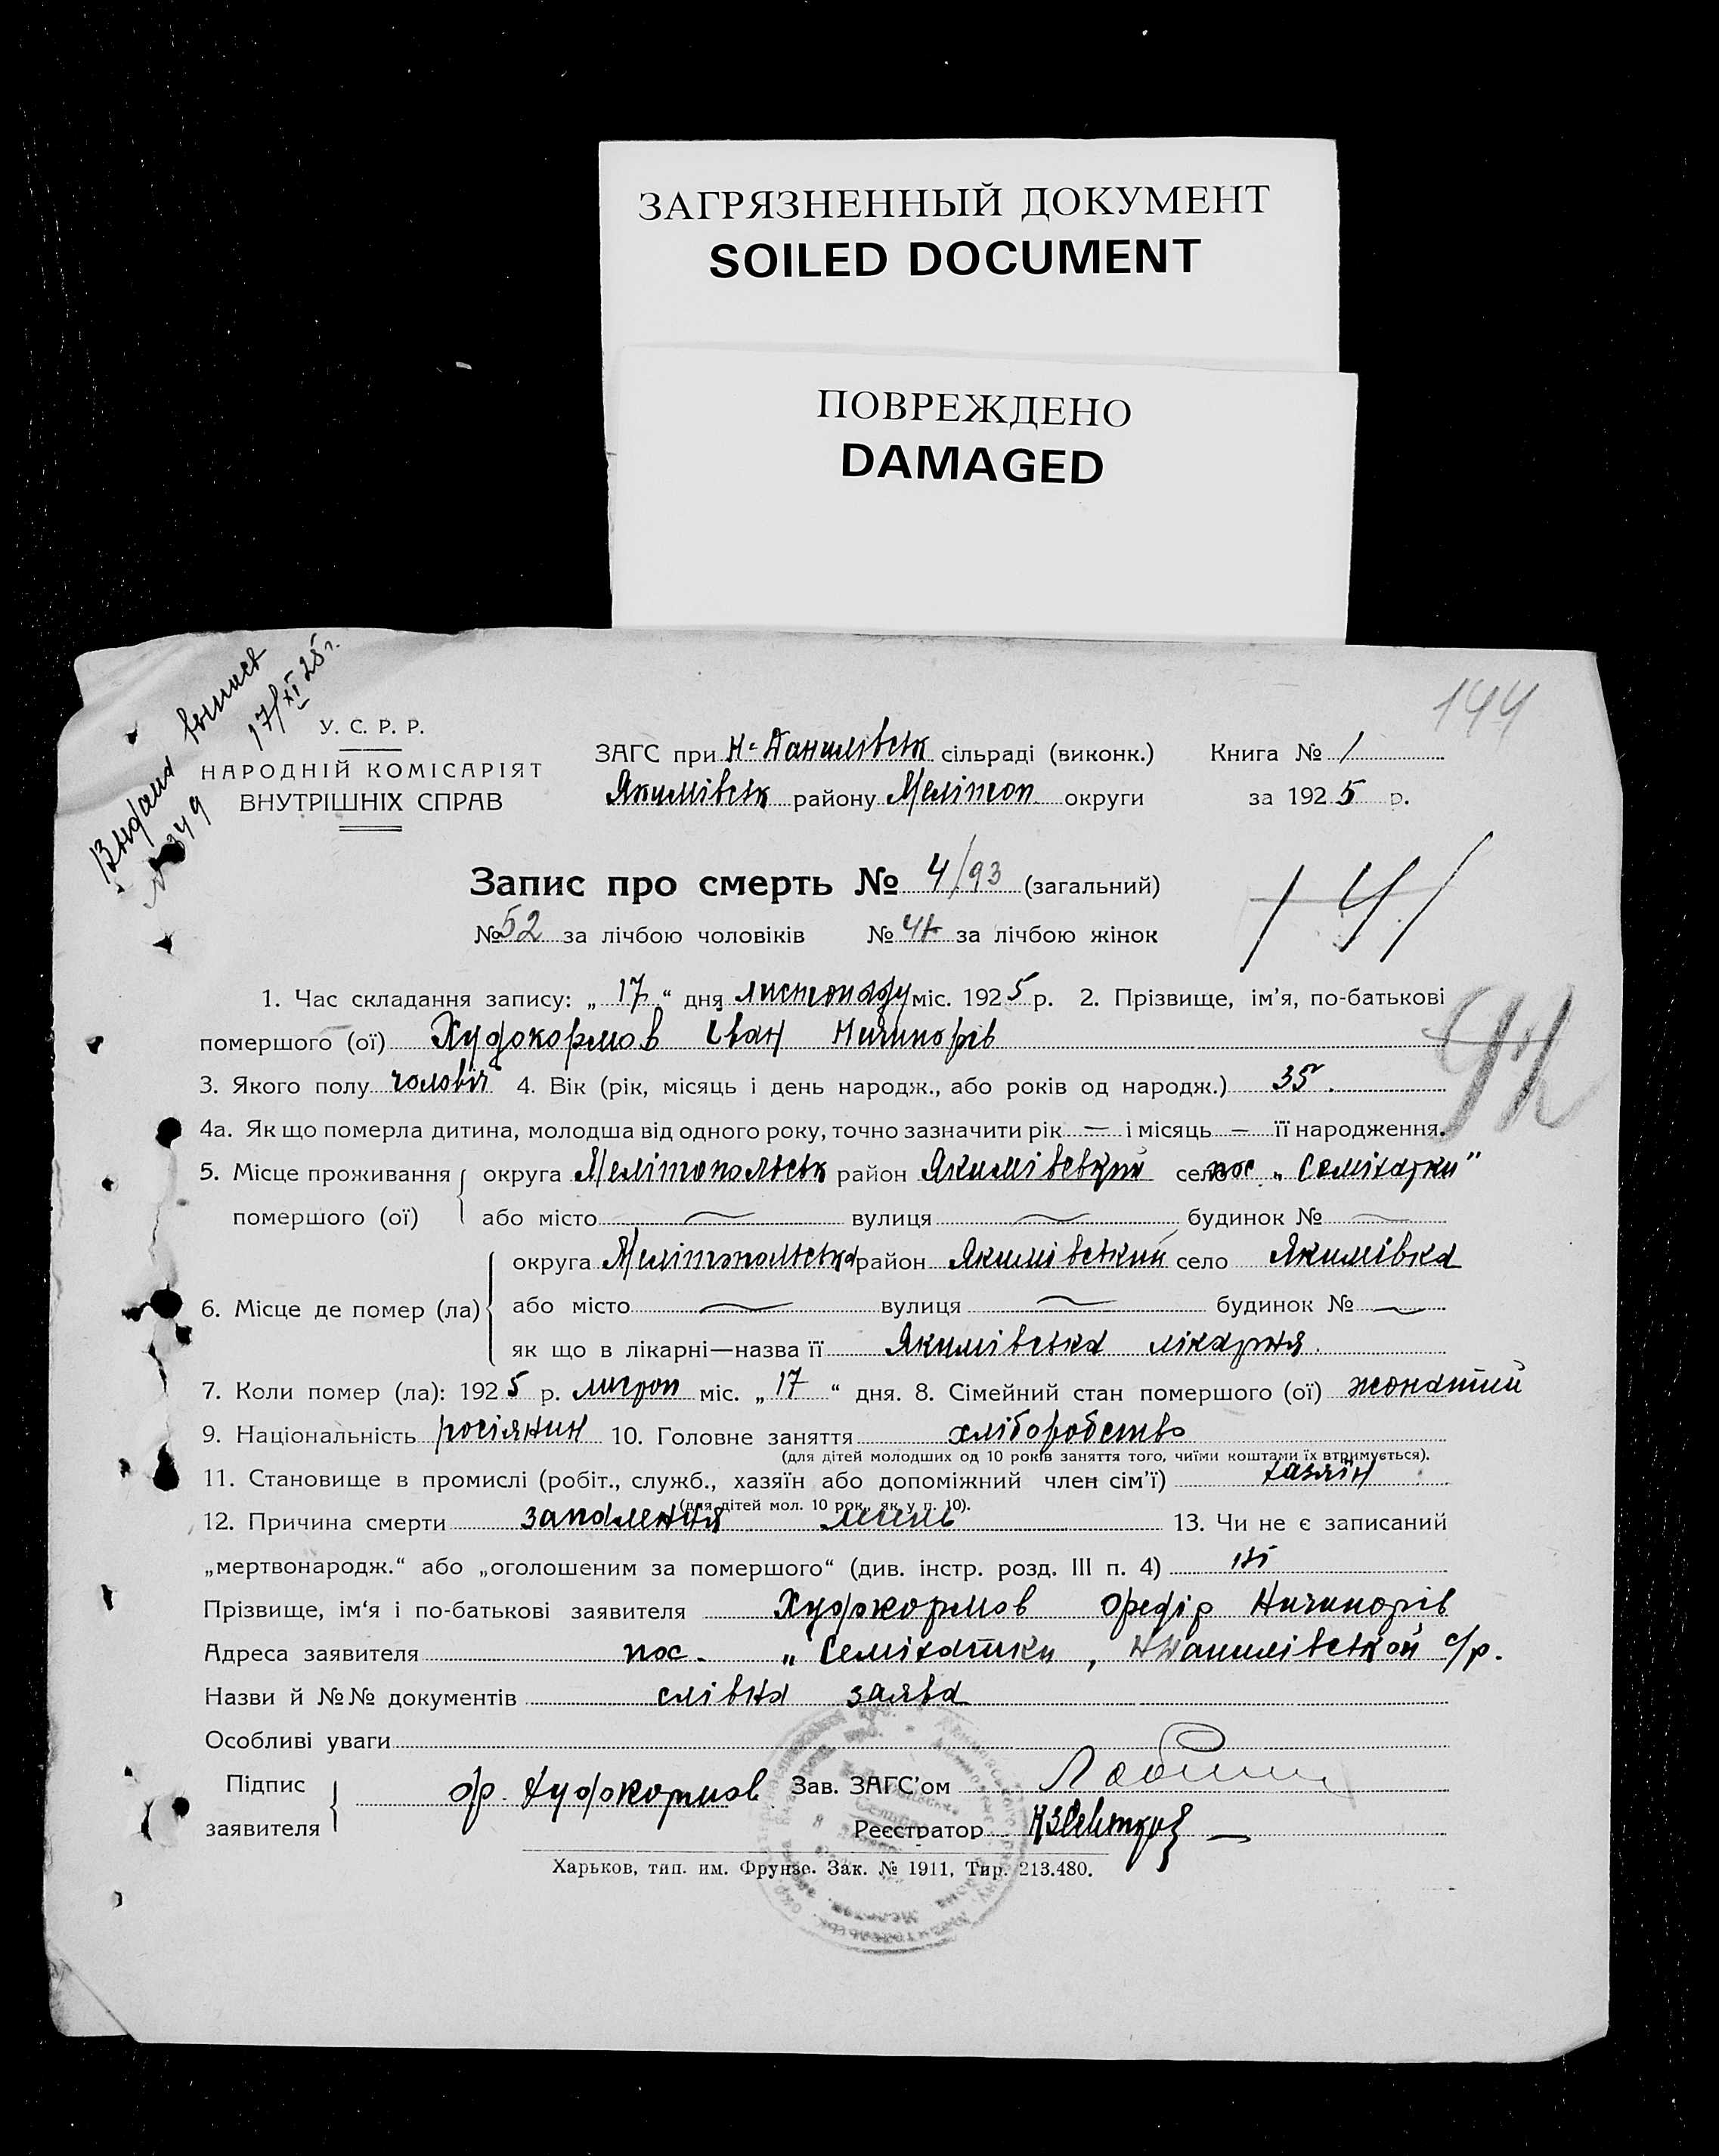 ЗАГРЯЗНЕННЫЙ ДОКУМЕНТ
SOILED DOCUMENT
ПОВРЕЖДЕНО
DAMAGED
Выдана выпись
17/XI 25 г.
№ 349
144
У. С. Р. Р.
НАРОДНІЙ КОМІСАРІЯТ
ВНУТРІШНІХ СПРАВ
ЗАГС при Н-Данилівськ сільраді (виконк.) Книга № 1
Якимівськ району Мелітоп округи за 1925 р.
Запис про смерть № 4/93 (загальний)
№ 52 за лічбою чоловіків № 41 за лічбою жінок
141
1. Час складання запису: „ 17 “ дня листопаду міс. 1925 р. 2. Прізвище, ім’я, по-батькові
помершого (ої) Худокормов Іван Ничипорів
3. Якого полу чоловіч 4. Вік (рік, місяць і день народж., або років од народж.) 35.
4а. Як що померла дитина, молодша від одного року, точно зазначити рік — і місяць — її народження.
5. Місце проживання округа Мелітопольськ район Якимівський село пос. „Семіхатки”
помершого (ої) або місто — вулиця — будинок № —
округа Мелітопольська район Якимівський село Якимівка
6. Місце де помер (ла) або місто — вулиця — будинок № —
як що в лікарні—назва її Якимівська лікарня.
7. Коли помер (ла): 1925 р. листоп міс. „ 17 “ дня. 8. Сімейний стан помершого (ої) жонатий
9. Національність росіянин 10. Головне заняття хліборобство
(для дітей молодших од 10 років заняття того, чиїми коштами їх втримується).
11. Становище в промислі (робіт., служб., хазяїн або допоміжний член сім’ї) хазяїн
(для дітей мол. 10 рок., як у п. 10).
12. Причина смерти запалення легень 13. Чи не є записаний
„мертвонародж.“ або „оголошеним за помершого“ (див. інстр. розд. III п. 4) ні
Прізвище, ім‘я і по-батькові заявителя Худокормов Федір Ничипорів
Адреса заявителя пос. „Семіхатки, Н Данилівськой с/р.
Назви й №№ документів слівна заява
Особливі уваги
Підпис
заявителя Ф. Худокормов Зав. ЗАГС’ом
Реєстратор
Харьков, тип. им. Фрунзе. Зак. № 1911, Тир. 213.480.